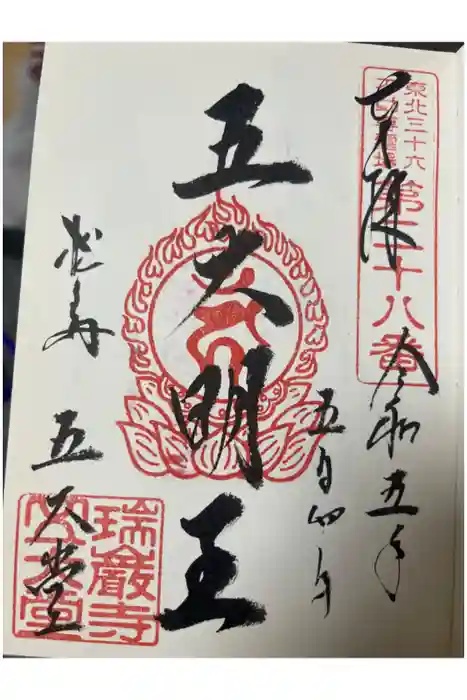 東北三十六
不動尊霊場
第二十八番
奉拝
令和五年
五月四日
五大明王
松島
五大堂
瑞巖寺
五大堂